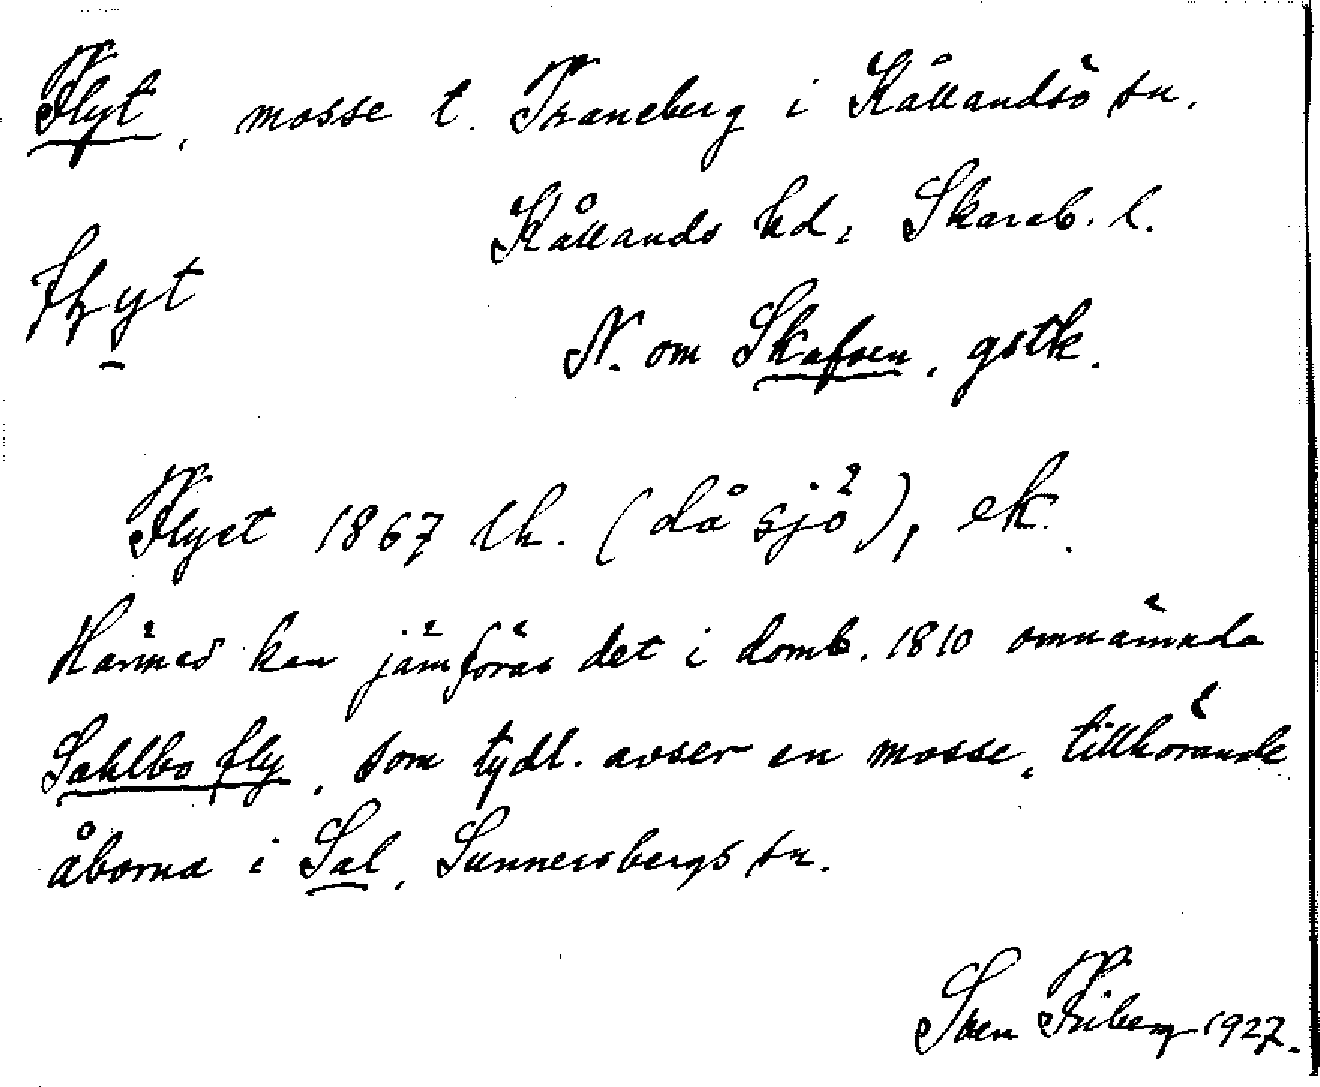 Flyt, mosse t. Traneberg i Kållandsö sn.
Kållands hd, Skarab. l.
flyt
N. om Skafven, gstk.
Flyet 1867 lh. (då sjö), ek.
Härmed kan jämföras det i domb. 1810 omnämnda
Sahlbo fly, som tydl. avser en mosse, tillhörande
åborna i Sal, Sunnersbergs sn.
Sven Friberg 1927.